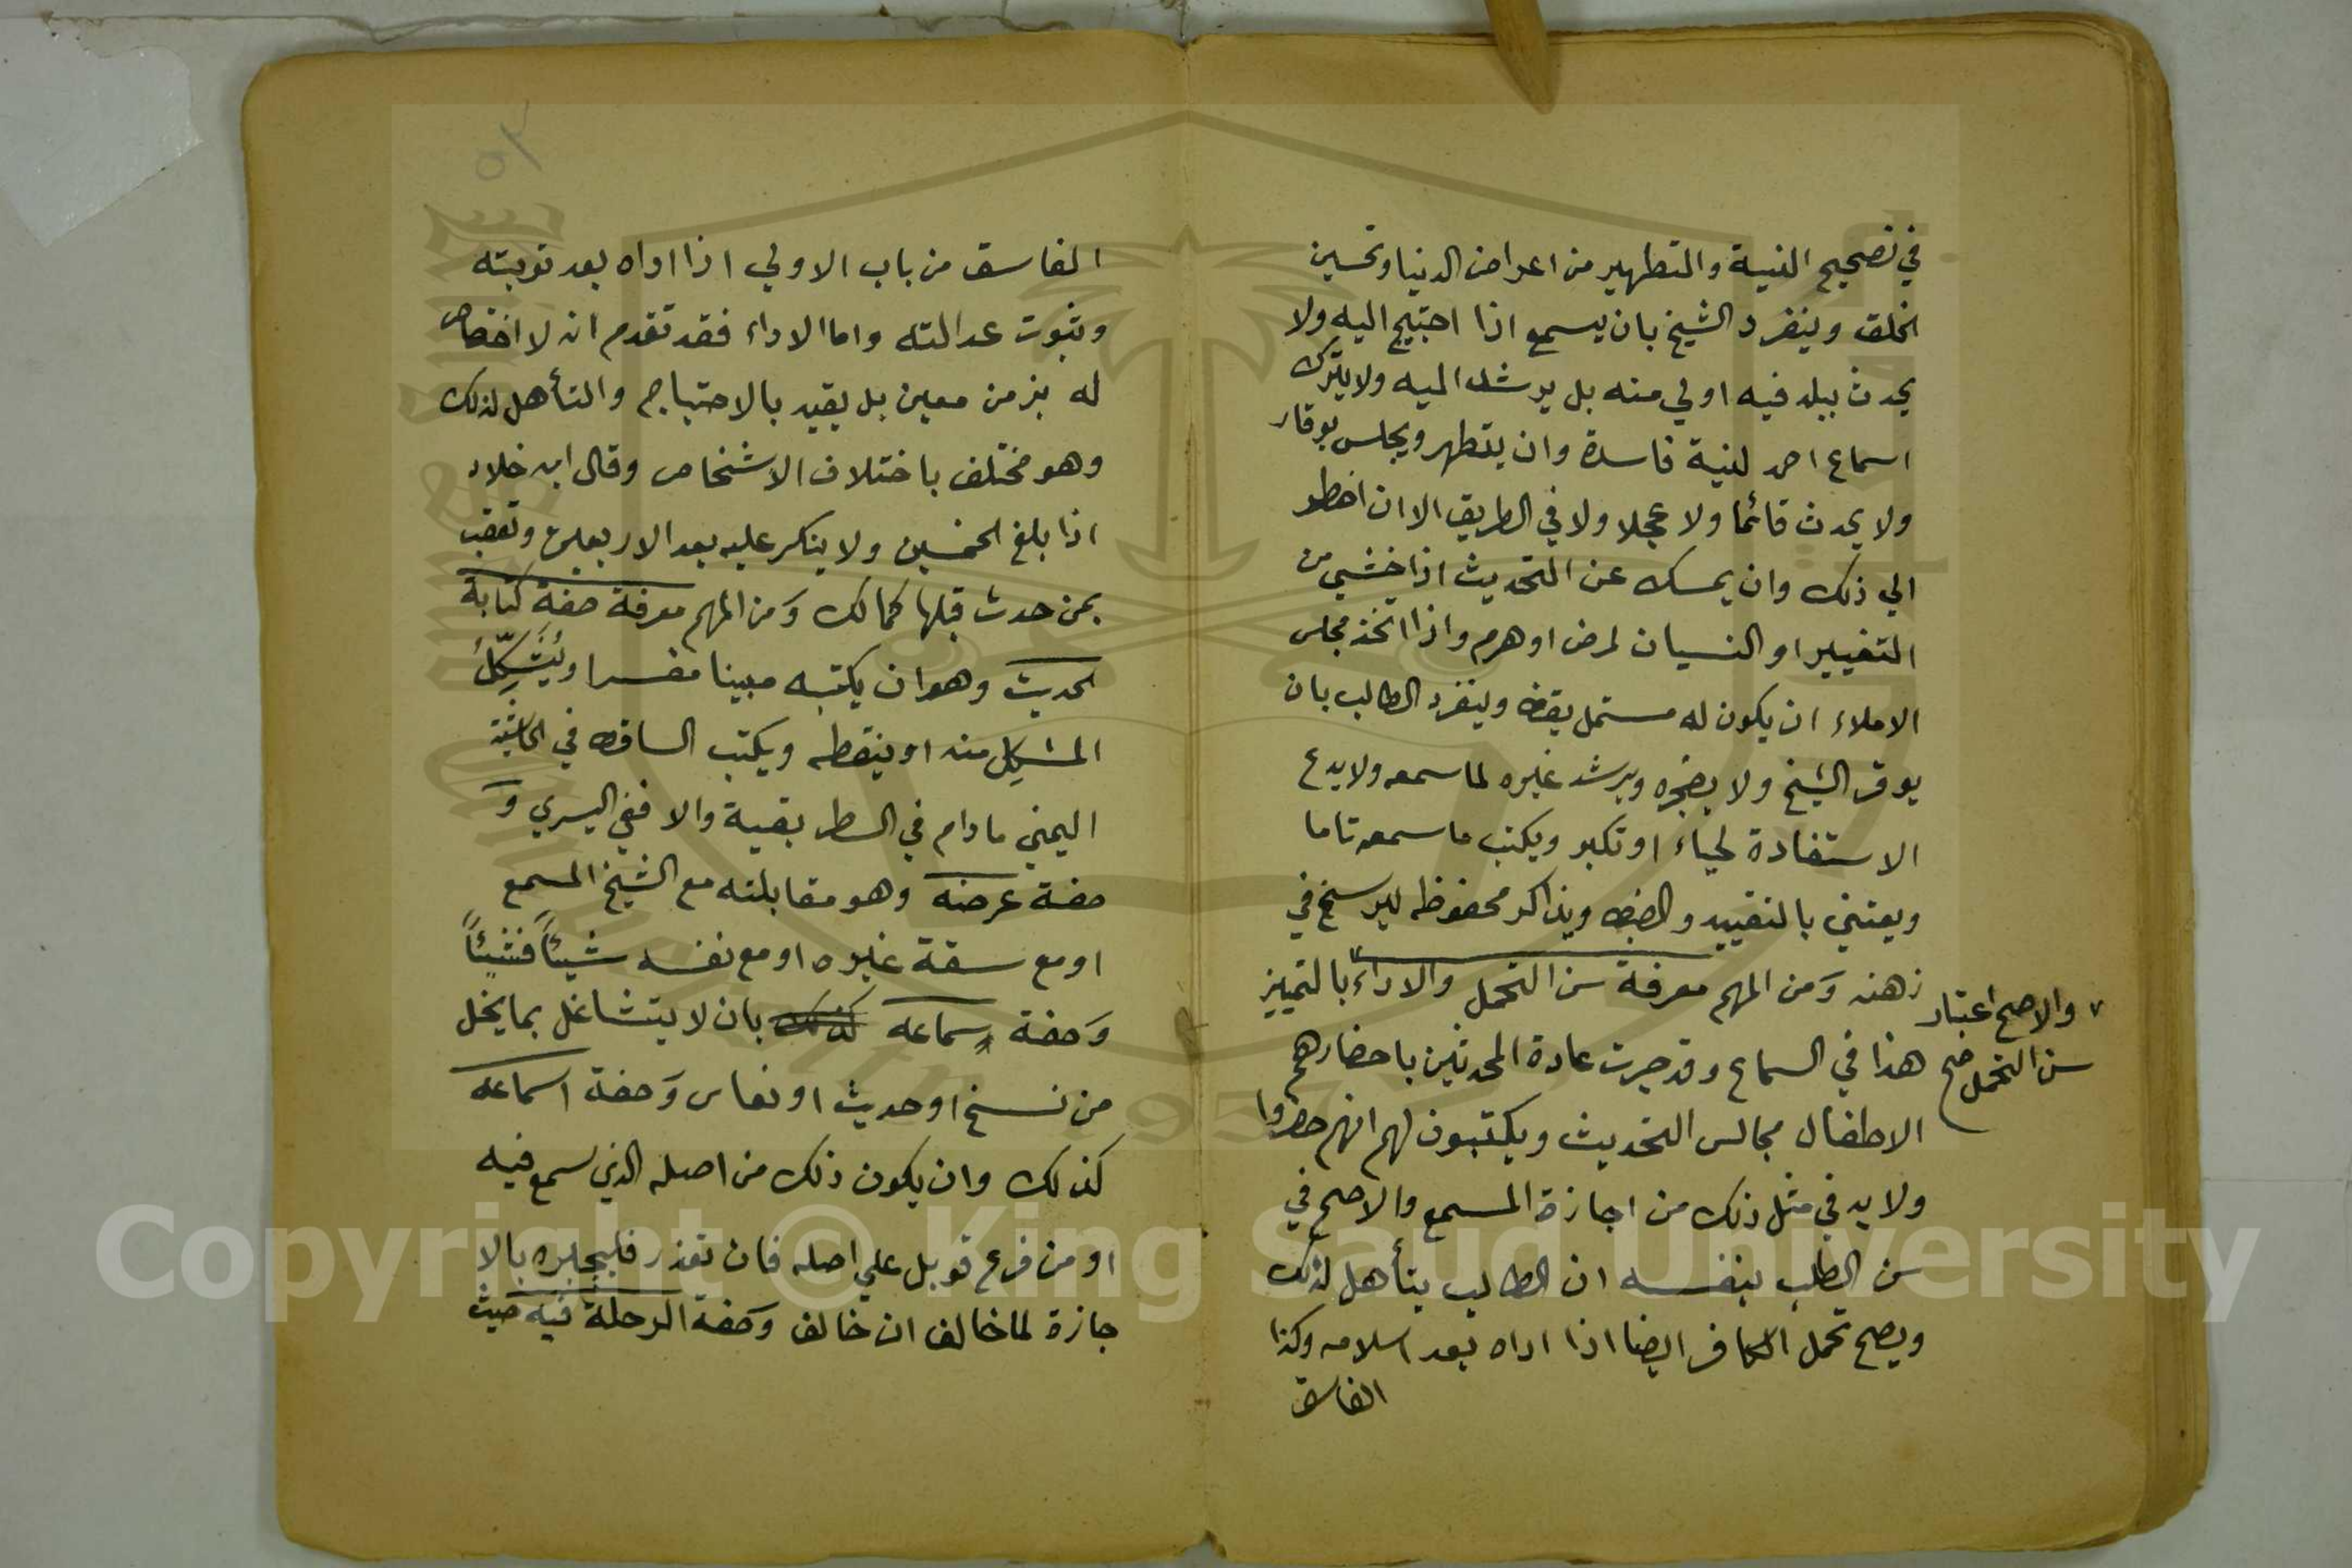 في تصحيح النية والتطهير من اعراض الدنيا وتحسين
الخلق وينفرد الشيخ بان يسمع اذا احتيج اليه ولا
يحدث ببلد فيه اولي منه بل يرشد اليه ولا يترك
اسماع احد لنية فاسدة وان يتطهر ويجلس بوقار
ولا يحدث قائما ولا عجلا ولا في الطريق الا ان اضطر
الي ذلك وان يمسك عن التحديث اذا خشي من
التغيير او النسيان لمرض او هرم واذا اتخذ مجلس
الاملاء ان يكون له مستمل يقظ وينفرد الطالب بان
يوقر الشيخ ولا يضجره ويرشد غيره لما سمعه ولا يدع
الاستفادة لحياء او تكبر ويكتب ما سمعه تاما
ويعتني بالتقييد والضبط ويذاكر محفوظه ليرسخ في
ذهنه وَمن المهم معرفة سن التحمل والاداء بالتمييز
والاصح اعتبار
سن التحمل صح
هذا في السماع وقد جرت عادة المحدثين باحضارهم
الاطفال مجالس التحديث ويكتبون لهم انهم حضروا
ولا بد في مثل ذلك من اجازة المسمع والاصح في
سن الطلب بنفسه ان الطالب يتأهل لذلك
ويصح تحمل الكافر ايضا اذا اداه بعد اسلامه وكذا
الفاسق
الفاسق من باب الاولي اذا اداه بعد توبته
وثبوت عدالته واما الاداء فقد تقدم انه لا اختصاص
له بزمن معين بل يقيد بالاحتياج والتأهل لذلك
وهو مختلف باختلاف الاشخاص وقال ابن خلاد
اذا بلغ الخمسين ولا ينكر عليه بعد الاربعين وتعقب
بمن حدث قبلها كمالك وَمن المهم معرفة صفة كتابة
الحديث وهو ان يكتبه مبينا مفسرا ويُشَكِّلُ
المشكِل منه او ينقطه ويكتب الساقط في الحاشية
اليمني ما دام في السطر بقية والا ففي اليسري وَ
صفة عرضه وهو مقابلته مع الشيخ المسمع
او مع ثقة غيره او مع نفسه شيئاً فشيئاً
وَصفة سماعه كذلك بان لا يتشاغل بما يخل
من نسخ او حديث او نعاس وَصفة اسماعه
كذلك وان يكون ذلك من اصله الذي سمع فيه
او من فرع قوبل علي اصله فان تعذر فليجبره بالا
جازة لما خالف ان خالف وَصفة الرحلة فيه حيث
Copyright © King Saud University
1957